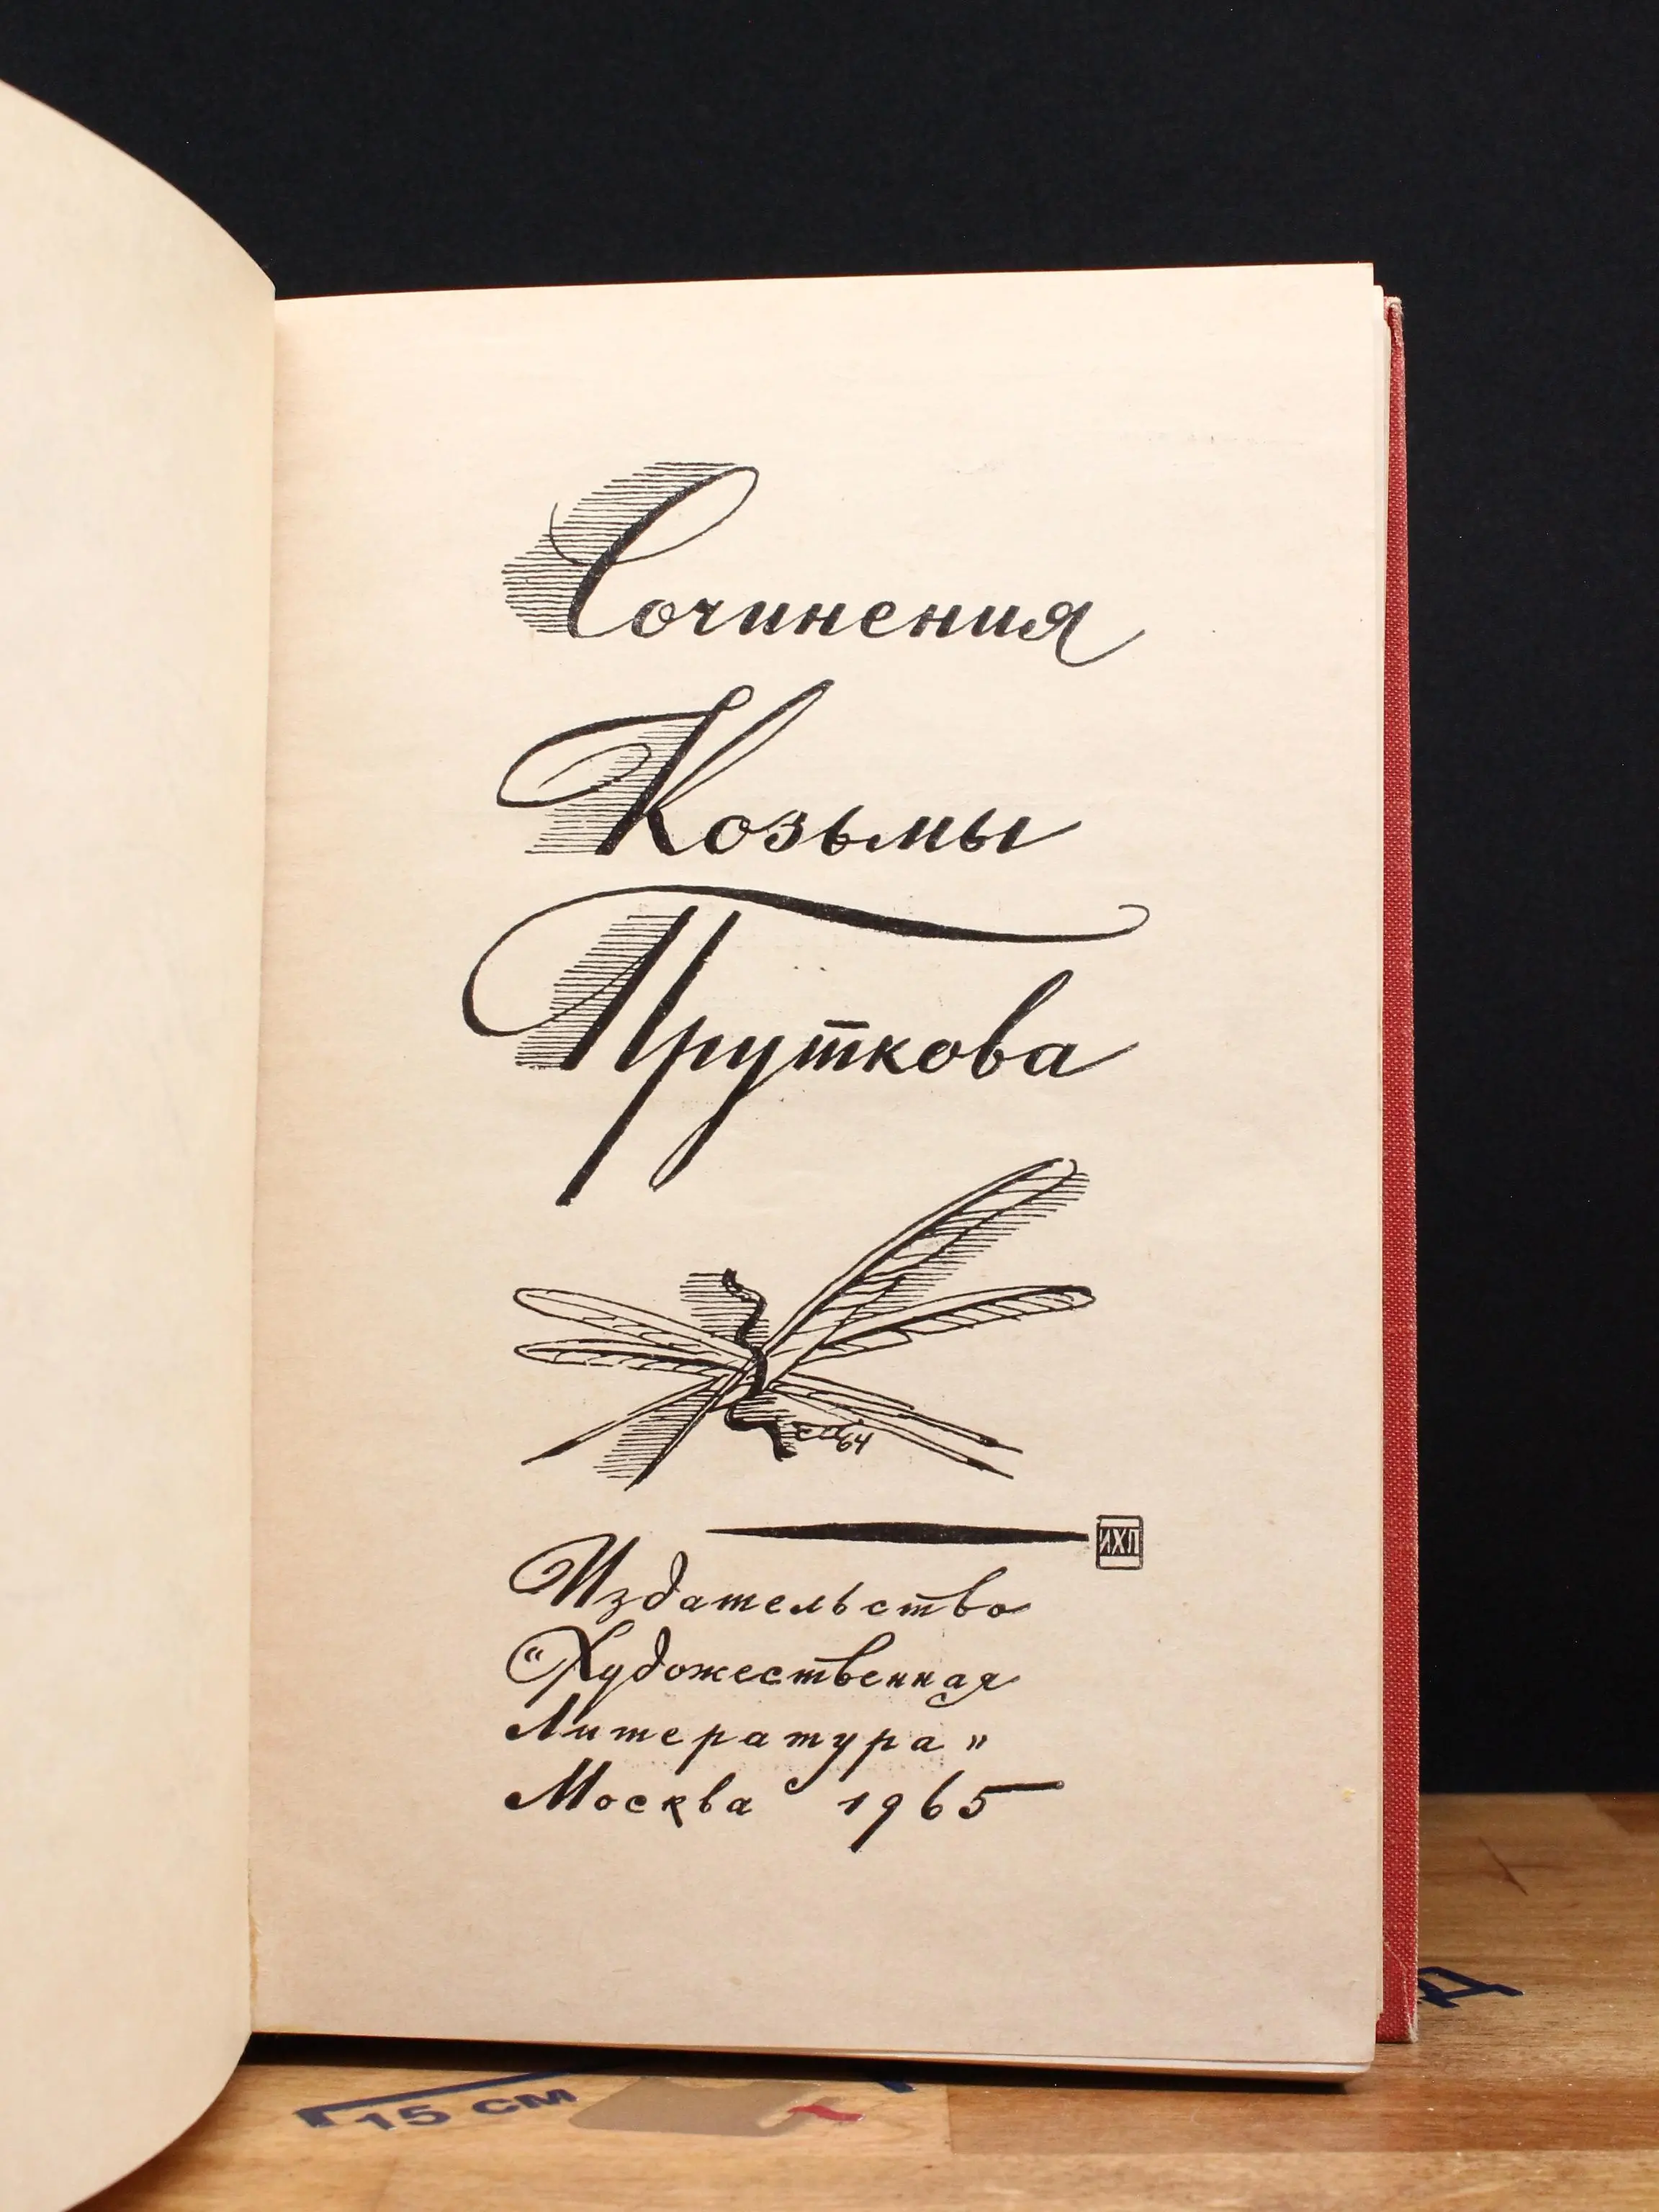 Сочинения
Козьмы
Пруткова
64
ИХЛ
Издательство
"Художественная
Литература"
Москва 1965
15 СМ